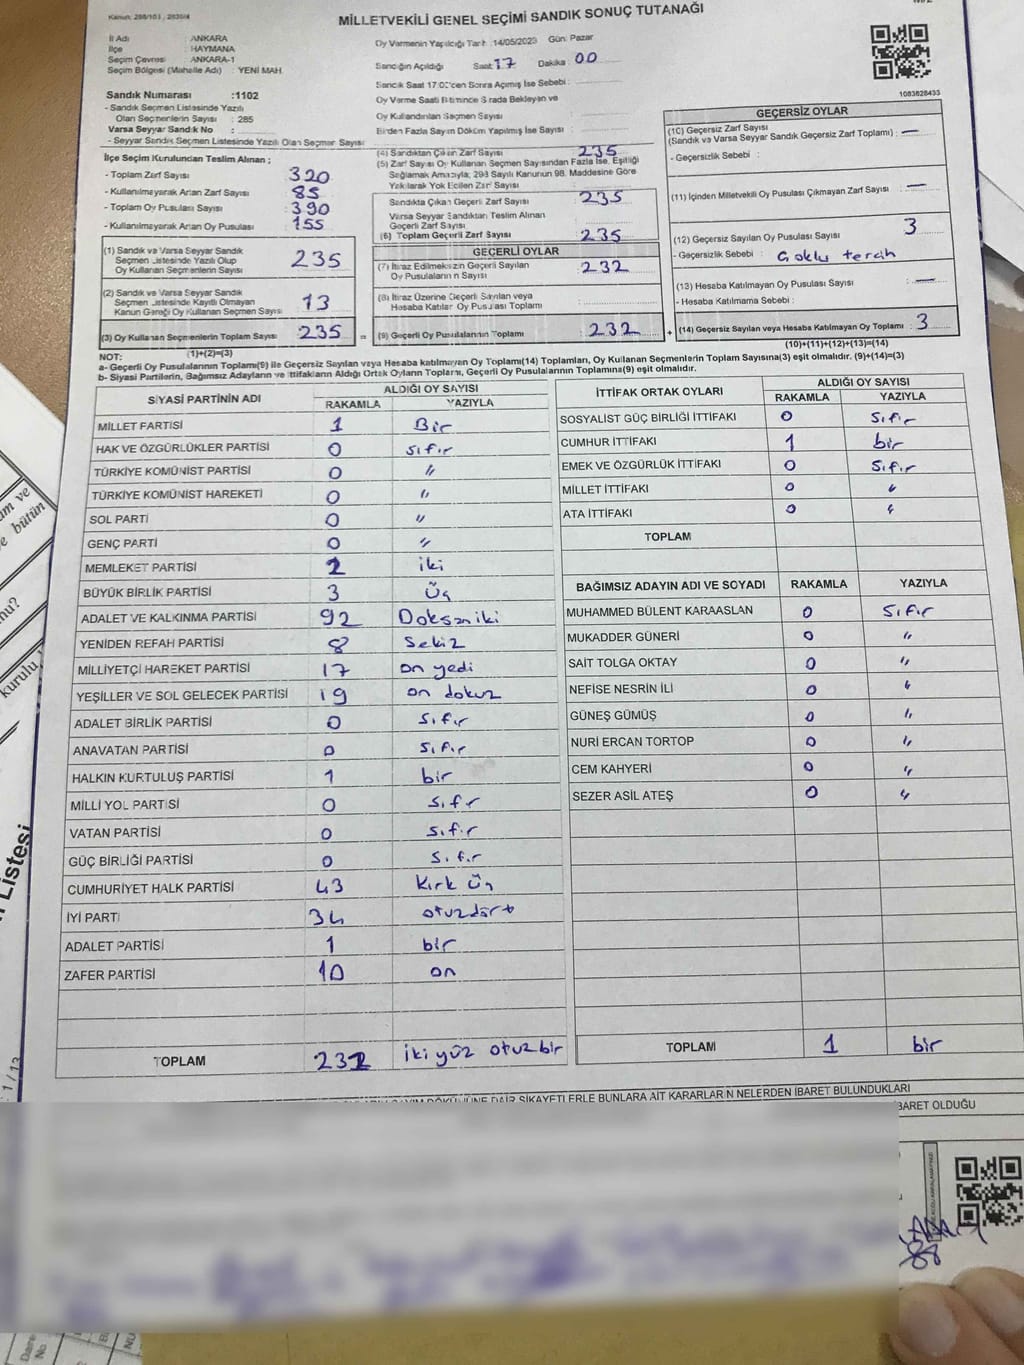 Kanun: 298/103, 2839/4
MİLLETVEKİLİ GENEL SEÇİMİ SANDIK SONUÇ TUTANAĞI
İl Adı : ANKARA
İlçe : HAYMANA
Seçim Çevresi : ANKARA-1
Seçim Bölgesi (Mahalle Adı) : YENİ MAH.
Oy Vermenin Yapıldığı Tarih :14/05/2023 Gün: Pazar
Sandığın Açıldığı Saat 17 Dakika 00
Sandık Saat 17:00'den Sonra Açılmış İse Sebebi :
Oy Verme Saati Bitiminde Sırada Bekleyen ve
Oy Kullandırılan Seçmen Sayısı
Birden Fazla Sayım Döküm Yapılmış İse Sayısı :
1083628433
Sandık Numarası :1102
- Sandık Seçmen Listesinde Yazılı
Olan Seçmenlerin Sayısı : 285
Varsa Seyyar Sandık No :
- Seyyar Sandık Seçmen Listesinde Yazılı Olan Seçmen Sayısı
İlçe Seçim Kurulundan Teslim Alınan ;
- Toplam Zarf Sayısı 320
- Kullanılmayarak Artan Zarf Sayısı 85
- Toplam Oy Pusulası Sayısı 390
- Kullanılmayarak Artan Oy Pusulası 155
(1) Sandık ve Varsa Seyyar Sandık
Seçmen Listesinde Yazılı Olup
Oy Kullanan Seçmenlerin Sayısı 235
(2) Sandık ve Varsa Seyyar Sandık
Seçmen Listesinde Kayıtlı Olmayan
Kanun Gereği Oy Kullanan Seçmen Sayısı 13
(3) Oy Kullanan Seçmenlerin Toplam Sayısı 235 =
(1)+(2)=(3)
(4) Sandıktan Çıkan Zarf Sayısı 235
(5) Zarf Sayısı Oy Kullanan Seçmen Sayısından Fazla İse, Eşitliği
Sağlamak Amacıyla, 298 Sayılı Kanunun 98. Maddesine Göre
Yakılarak Yok Edilen Zarf Sayısı
Sandıkta Çıkan Geçerli Zarf Sayısı 235
Varsa Seyyar Sandıktan Teslim Alınan
Geçerli Zarf Sayısı
(6) Toplam Geçerli Zarf Sayısı 235
GEÇERLİ OYLAR
(7) İtiraz Edilmeksizin Geçerli Sayılan
Oy Pusulalarının Sayısı 232
(8) İtiraz Üzerine Geçerli Sayılan veya
Hesaba Katılan Oy Pusulası Toplamı
(9) Geçerli Oy Pusulalarının Toplamı 232 +
GEÇERSİZ OYLAR
(10) Geçersiz Zarf Sayısı
(Sandık ve Varsa Seyyar Sandık Geçersiz Zarf Toplamı) : —
- Geçersizlik Sebebi :
(11) İçinden Milletvekili Oy Pusulası Çıkmayan Zarf Sayısı : —
(12) Geçersiz Sayılan Oy Pusulası Sayısı : 3
- Geçersizlik Sebebi : Çoklu tercih
(13) Hesaba Katılmayan Oy Pusulası Sayısı : —
- Hesaba Katılmama Sebebi :
(14) Geçersiz Sayılan veya Hesaba Katılmayan Oy Pusulası Toplamı : 3
(10)+(11)+(12)+(13)=(14)
NOT:
a- Geçerli Oy Pusulalarının Toplamı(9) ile Geçersiz Sayılan veya Hesaba katılmayan Oy Toplamı(14) Toplamları, Oy Kullanan Seçmenlerin Toplam Sayısına(3) eşit olmalıdır. (9)+(14)=(3)
b- Siyasi Partilerin, Bağımsız Adayların ve İttifakların Aldığı Ortak Oyların Toplamı, Geçerli Oy Pusulalarının Toplamına(9) eşit olmalıdır.
SİYASİ PARTİNİN ADI ALDIĞI OY SAYISI
RAKAMLA YAZIYLA
MİLLET PARTİSİ 1 Bir
HAK VE ÖZGÜRLÜKLER PARTİSİ 0 sıfır
TÜRKİYE KOMÜNİST PARTİSİ 0 "
TÜRKİYE KOMÜNİST HAREKETİ 0 "
SOL PARTİ 0 "
GENÇ PARTİ 0 "
MEMLEKET PARTİSİ 2 iki
BÜYÜK BİRLİK PARTİSİ 3 Üç
ADALET VE KALKINMA PARTİSİ 92 Doksaniki
YENİDEN REFAH PARTİSİ 8 Sekiz
MİLLİYETÇİ HAREKET PARTİSİ 17 on yedi
YEŞİLLER VE SOL GELECEK PARTİSİ 19 on dokuz
ADALET BİRLİK PARTİSİ 0 sıfır
ANAVATAN PARTİSİ 0 sıfır
HALKIN KURTULUŞ PARTİSİ 1 bir
MİLLİ YOL PARTİSİ 0 sıfır
VATAN PARTİSİ 0 sıfır
GÜÇ BİRLİĞİ PARTİSİ 0 sıfır
CUMHURİYET HALK PARTİSİ 43 Kırk Üç
İYİ PARTİ 34 otuzdört
ADALET PARTİSİ 1 bir
ZAFER PARTİSİ 10 on
TOPLAM 232 iki yüz otuz bir
İTTİFAK ORTAK OYLARI ALDIĞI OY SAYISI
RAKAMLA YAZIYLA
SOSYALİST GÜÇ BİRLİĞİ İTTİFAKI 0 sıfır
CUMHUR İTTİFAKI 1 bir
EMEK VE ÖZGÜRLÜK İTTİFAKI 0 sıfır
MİLLET İTTİFAKI 0 "
ATA İTTİFAKI 0 "
TOPLAM
BAĞIMSIZ ADAYIN ADI VE SOYADI RAKAMLA YAZIYLA
MUHAMMED BÜLENT KARAASLAN 0 sıfır
MUKADDER GÜNERİ 0 "
SAİT TOLGA OKTAY 0 "
NEFİSE NESRİN İLİ 0 "
GÜNEŞ GÜMÜŞ 0 "
NURİ ERCAN TORTOP 0 "
CEM KAHYERİ 0 "
SEZER ASİL ATEŞ 0 "
TOPLAM 1 bir
DÖKÜMÜNE DAİR ŞİKAYETLERLE BUNLARA AİT KARARLARIN NELERDEN İBARET BULUNDUKLARI
BARET OLDUĞU
ve bütün
kurulu
Listesi
1 / 13